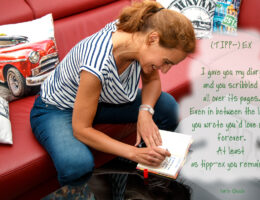 (TIPP-) EX
I gave you my diary
and you scribbled
all over its pages.
Even in between the l
you wrote you'd love m
forever.
At least
as tipp-ex you remain
HAVANA